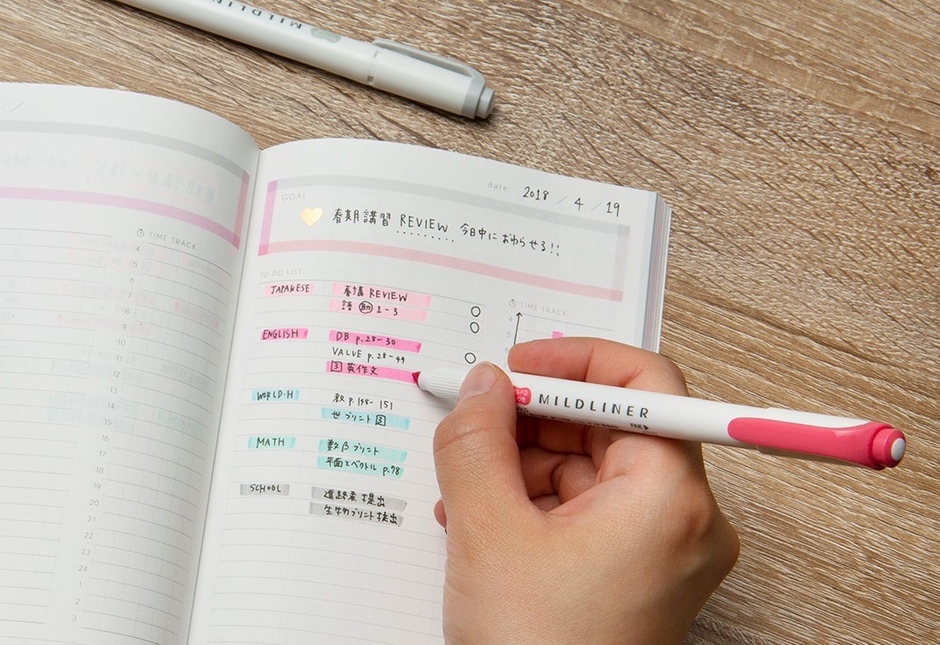 MILDLINER
date: 2018 / 4 / 19
GOAL
春期講習 REVIEW 今日中におわらせる!!
TO DO LIST
TIME TRACK
JAPANESE 春講 REVIEW
語 1-3
ENGLISH DB p.28-30
VALUE p.28-49
英作文
WORLD.H 教 p.148-151
世 プリント
MATH 数β プリント
平面とベクトル p.78
SCHOOL 進路表 提出
プリント提出
4
5
6
MILDLINER
TIME TRACK
4
5
6
7
8
9
10
11
12
13
14
15
16
17
18
19
20
21
22
23
24
1
2
3